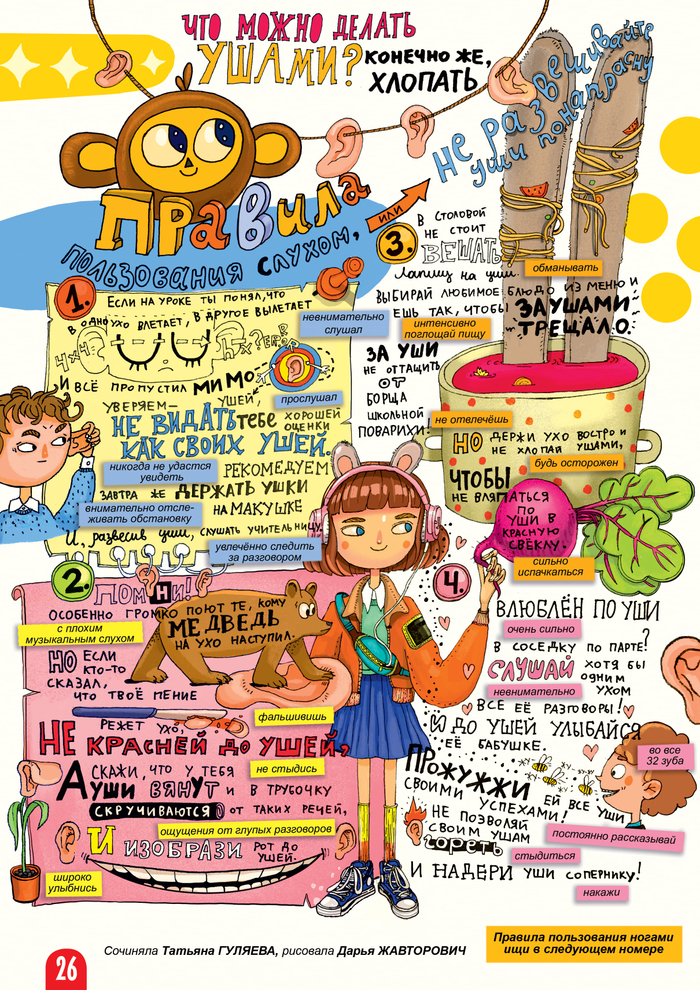 ЧТО МОЖНО ДЕЛАТЬ
УШАМИ?
КОНЕЧНО ЖЕ,
ХЛОПАТЬ
Правила
ПОЛЬЗОВАНИЯ СЛУХОМ,
ИЛИ
Не развешивайте
уши понапрасну
1.
Если на уроке ты понял, что
в одно ухо влетает, в другое вылетает
невнимательно
слушал
И ВСЁ ПРОПУСТИЛ МИМО
УШЕЙ,
прослушал
УВЕРЯЕМ–
НЕ ВИДАТЬ тебе ХОРОШЕЙ
ОЦЕНКИ
КАК СВОИХ УШЕЙ.
никогда не удастся
увидеть
РЕКОМЕДУЕМ
ЗАВТРА ЖЕ ДЕРЖАТЬ УШКИ
НА МАКУШКЕ
внимательно отсле-
живать обстановку
И, развесив уши, слушать учительницу.
увлечённо следить
за разговором
2.
ПОМНИ!
ОСОБЕННО ГРОМКО ПОЮТ ТЕ, КОМУ
МЕДВЕДЬ
НА УХО НАСТУПИЛ.
с плохим
музыкальным слухом
НО ЕСЛИ
КТО-ТО
СКАЗАЛ,
ЧТО ТВОЁ ПЕНИЕ
РЕЖЕТ УХО,
фальшивишь
НЕ КРАСНЕЙ ДО УШЕЙ,
не стыдись
А СКАЖИ, ЧТО У ТЕБЯ
УШИ ВЯНУТ И В ТРУБОЧКУ
СКРУЧИВАЮТСЯ ОТ ТАКИХ РЕЧЕЙ,
ощущения от глупых разговоров
И ИЗОБРАЗИ РОТ ДО
УШЕЙ.
широко
улыбнись
3.
В СТОЛОВОЙ
НЕ СТОИТ
ВЕШАТЬ
Лапшу на уши.
обманывать
ВЫБИРАЙ ЛЮБИМОЕ БЛЮДО ИЗ МЕНЮ И
ЕШЬ ТАК, ЧТОБЫ ЗА УШАМИ
ТРЕЩАЛО.
интенсивно
поглощай пищу
ЗА УШИ
НЕ ОТТАЩИТЬ
ОТ
БОРЩА
ШКОЛЬНОЙ
ПОВАРИХИ!
не отвлечёшь
НО ДЕРЖИ УХО ВОСТРО И
НЕ ХЛОПАЙ УШАМИ,
будь осторожен
ЧТОБЫ
НЕ ВЛЯПАТЬСЯ
ПО
УШИ В
КРАСНУЮ
СВЁКЛУ.
сильно
испачкаться
4.
ВЛЮБЛЁН ПО УШИ
очень сильно
В СОСЕДКУ ПО ПАРТЕ?
СЛУШАЙ ХОТЯ БЫ
ОДНИМ
УХОМ
невнимательно
ВСЕ ЕЁ РАЗГОВОРЫ!
И ДО УШЕЙ УЛЫБАЙСЯ
ЕЁ БАБУШКЕ.
во все
32 зуба
ПРОЖУЖЖИ ЕЙ ВСЕ УШИ
СВОИМИ УСПЕХАМИ!
постоянно рассказывай
НЕ ПОЗВОЛЯЙ
СВОИМ УШАМ
ГОРЕТЬ
стыдиться
И НАДЕРИ УШИ СОПЕРНИКУ!
накажи
Сочиняла Татьяна ГУЛЯЕВА, рисовала Дарья ЖАВТОРОВИЧ
Правила пользования ногами
ищи в следующем номере
26